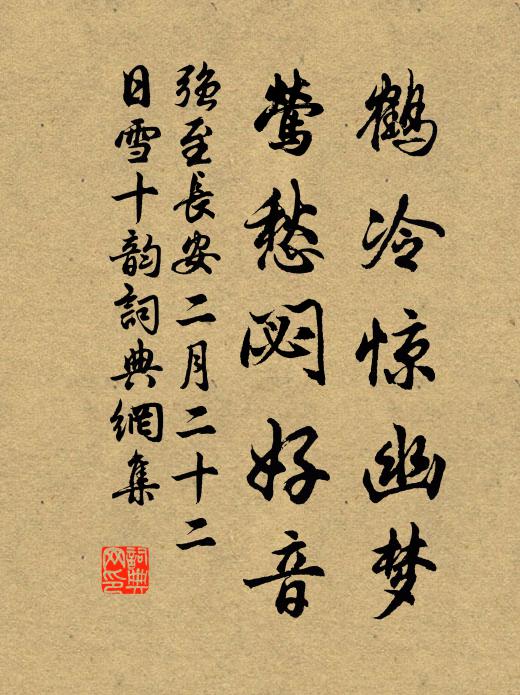 鹤冷惊幽梦
莺愁閟好音
强至長安二月二十二
日雪十韵詞典網集
詞典
网印